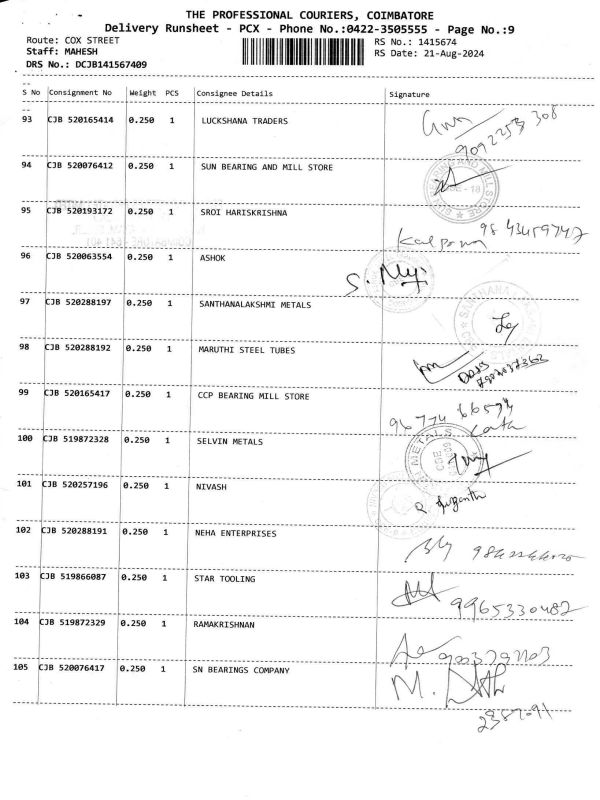 THE PROFESSIONAL COURIERS, COIMBATORE
Delivery Runsheet - PCX - Phone No.:0422-3505555 - Page No.:9
Route: COX STREET
Staff: MAHESH
DRS No.: DCJB141567409
RS No.: 1415674
RS Date: 21-Aug-2024
S No Consignment No Weight PCS Consignee Details Signature
93 CJB 520165414 0.250 1 LUCKSHANA TRADERS
94 CJB 520076412 0.250 1 SUN BEARING AND MILL STORE
95 CJB 520193172 0.250 1 SROI HARISKRISHNA
96 CJB 520063554 0.250 1 ASHOK
97 CJB 520288197 0.250 1 SANTHANALAKSHMI METALS
98 CJB 520288192 0.250 1 MARUTHI STEEL TUBES
99 CJB 520165417 0.250 1 CCP BEARING MILL STORE
96774 66594
100 CJB 519872328 0.250 1 SELVIN METALS
101 CJB 520257196 0.250 1 NIVASH
102 CJB 520288191 0.250 1 NEHA ENTERPRISES
103 CJB 519866087 0.250 1 STAR TOOLING
9965330482
104 CJB 519872329 0.250 1 RAMAKRISHNAN
105 CJB 520076417 0.250 1 SN BEARINGS COMPANY